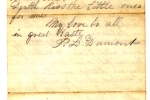 Kiss the Little ones
for me
My Love to all
in great Haste
P. D. Dumont